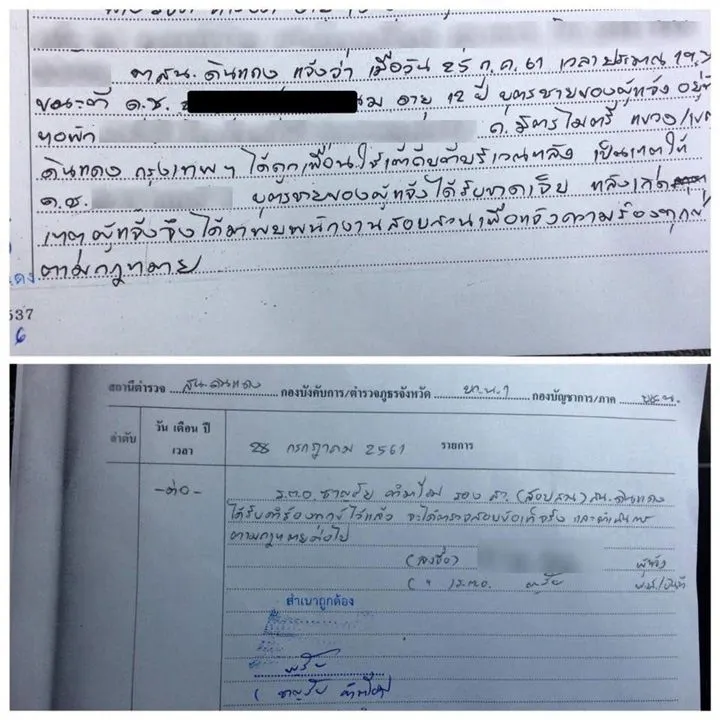 ที่ สน.ดินแดง แจ้งว่า เมื่อวัน 25 ก.ค.61 เวลาประมาณ 19.
ขณะที่ ด.ช. อายุ 12 ปี บุตรชายของผู้แจ้ง อยู่ที่
หอพัก ถ.มิตรไมตรี แขวง/เขต
ดินแดง กรุงเทพฯ ได้ถูกเพื่อนใช้เท้าถีบที่บริเวณหลัง เป็นเหตุให้
ด.ช. บุตรชายของผู้แจ้งได้รับบาดเจ็บ หลังเกิด
เหตุผู้แจ้งจึงได้มาพบพนักงานสอบสวนเพื่อแจ้งความร้องทุกข์
ตามกฎหมาย
537
6
สถานีตำรวจ สน.ดินแดง กองบังคับการ/ตำรวจภูธรจังหวัด บก.น.1 กองบัญชาการ/ภาค บช.น.
ลำดับ
วัน เดือน ปี
เวลา
28 กรกฎาคม 2561 รายการ
-ต่อ-
ร.ต.อ. รอง สว.(สอบสวน) สน.ดินแดง
ได้รับคำร้องทุกข์ไว้แล้ว จะได้ตรวจสอบข้อเท็จจริง และดำเนินการ
ตามกฎหมายต่อไป
(ลงชื่อ) ผู้แจ้ง
( " ) ร.ต.อ.
สำเนาถูกต้อง